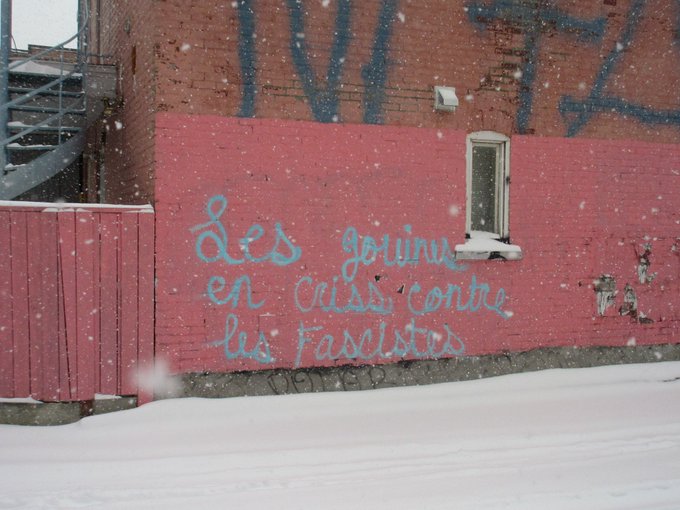 Les gouines
en criss contre
les Fascistes